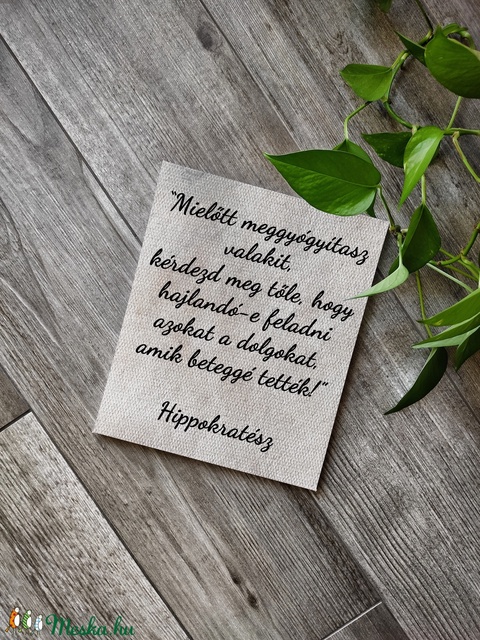 "Mielőtt meggyógyítasz
valakit,
kérdezd meg tőle, hogy
hajlandó-e feladni
azokat a dolgokat,
amik beteggé tették!"
Hippokratész
Meska.hu